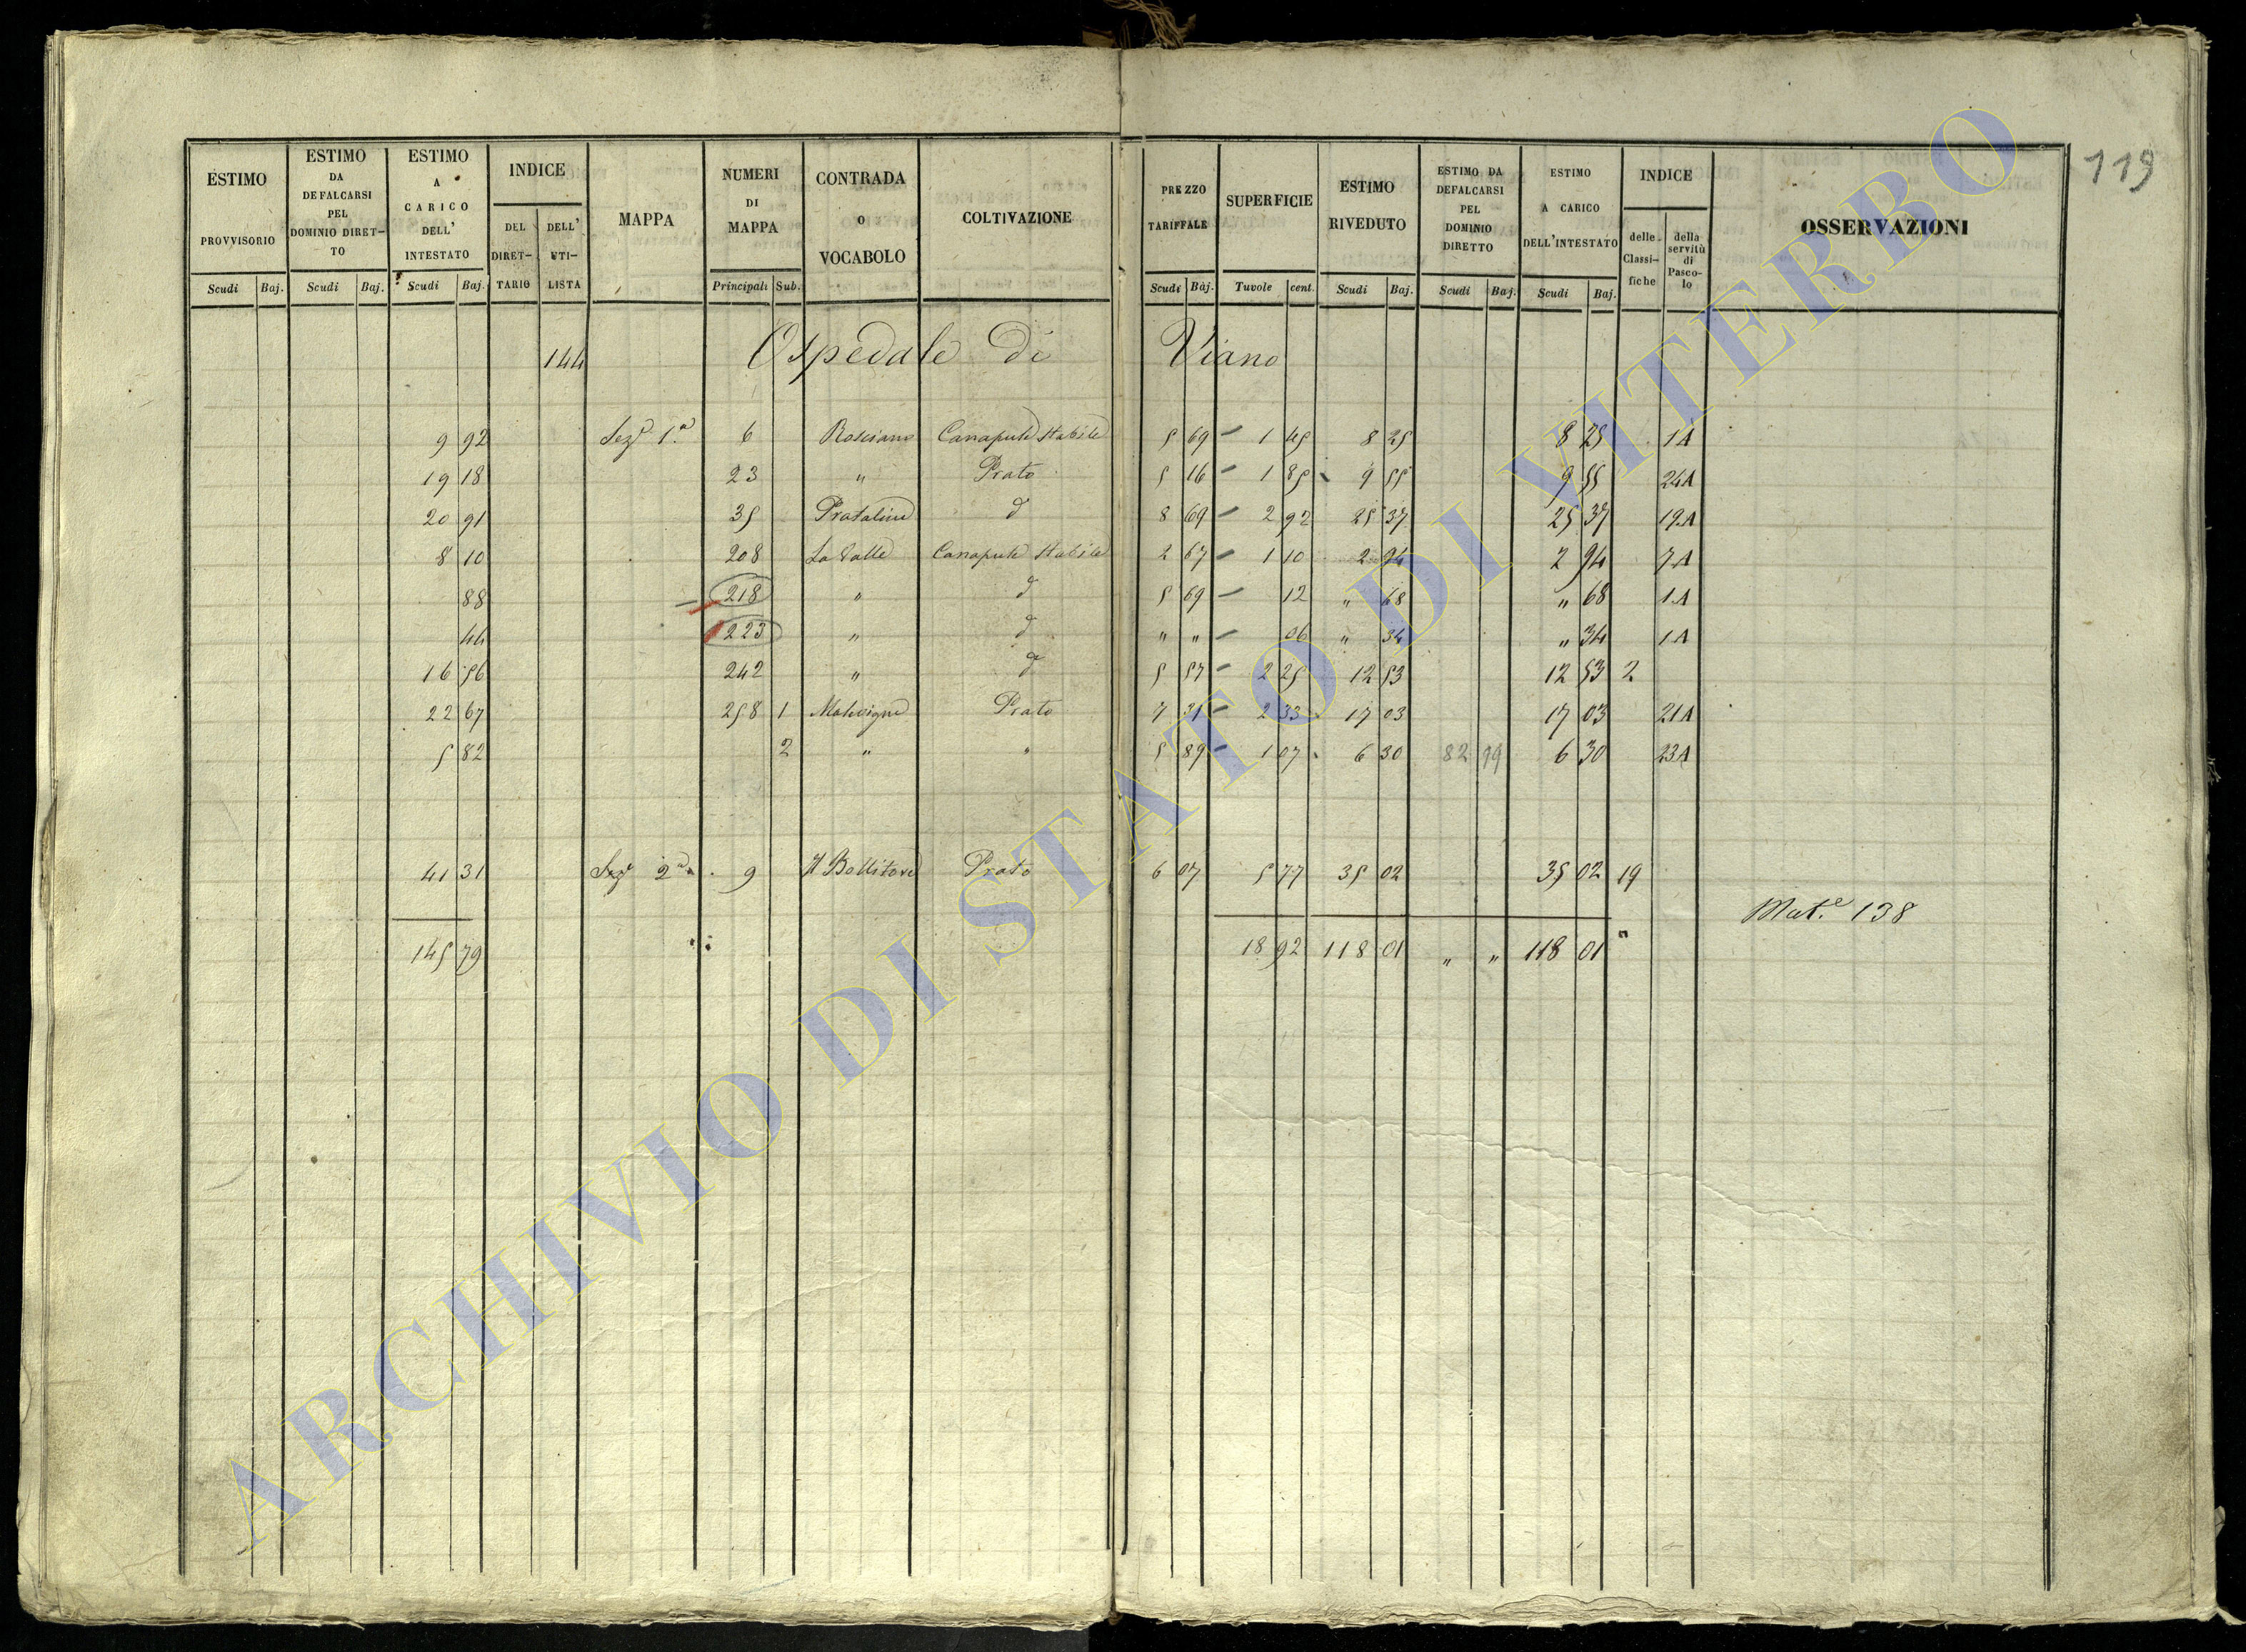 119
ESTIMO PROVVISORIO
ESTIMO DA DEFALCARSI PEL DOMINIO DIRETTO
ESTIMO A CARICO DELL' INTESTATO
INDICE
DEL DIRETTARIO
DELL' UTILISTA
MAPPA
NUMERI DI MAPPA
CONTRADA O VOCABOLO
COLTIVAZIONE
PREZZO TARIFFALE
SUPERFICIE
ESTIMO RIVEDUTO
ESTIMO DA DEFALCARSI PEL DOMINIO DIRETTO
ESTIMO A CARICO DELL'INTESTATO
INDICE
delle Classifiche
della servitù di Pascolo
OSSERVAZIONI
Scudi Baj. Scudi Baj. Scudi Baj. Principali Sub. Scudi Baj. Tavole cent. Scudi Baj. Scudi Baj. Scudi Baj.
144 Ospedale di Viano
9 92 Sez.e 1.a 6 Rosciano Canapule Stabile 5 69 1 45 8 25 8 25 1A
19 18 23 " Prato 5 16 1 85 9 55 9 55 24A
20 91 35 Prataline d 8 69 2 92 25 37 25 37 19A
8 10 208 La Valle Canapule Stabile 2 67 1 10 2 94 2 94 7A
88 218 " d 5 69 12 " 68 " 68 1A
44 223 " d " " 06 " 34 " 34 1A
16 56 242 " d 5 57 2 25 12 53 12 53 2
22 67 258 1 Prato 7 31 2 33 17 03 17 03 21A
5 82 2 " " 5 89 1 07 6 30 82 99 6 30 23A
41 31 Sez.e 2a 9 Il Bollitore Prato 6 07 5 77 35 02 35 02 19
Mat.e 138
145 79 18 92 118 01 " " 118 01
ARCHIVIO DI STATO DI VITERBO